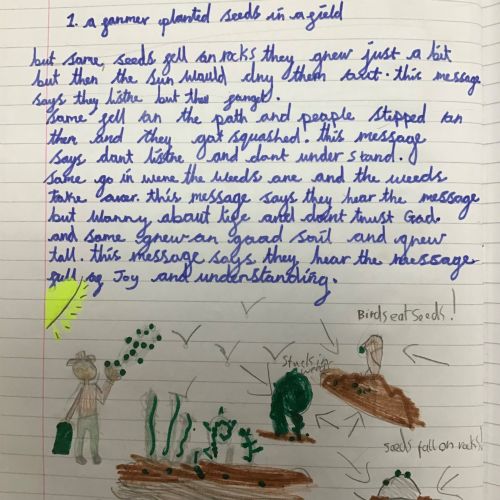 1. a farmer planted seeds in a field
but some, seeds fell on rocks they grew just a bit
but then the sun would dry them out. this message
says they listne but then forget.
some fell on the path and people stepped on
them and they got squashed. this message
says dont listne and dont under stand.
some go in were the weeds are and the weeds
take over. this message says they hear the message
but wanny about life and dont trust God.
and some grew on good soil and grew
tall. this message says they hear the message
full of Joy and understanding.
Birds eat seeds!
Stuck in weeds
seeds fall on rocks!